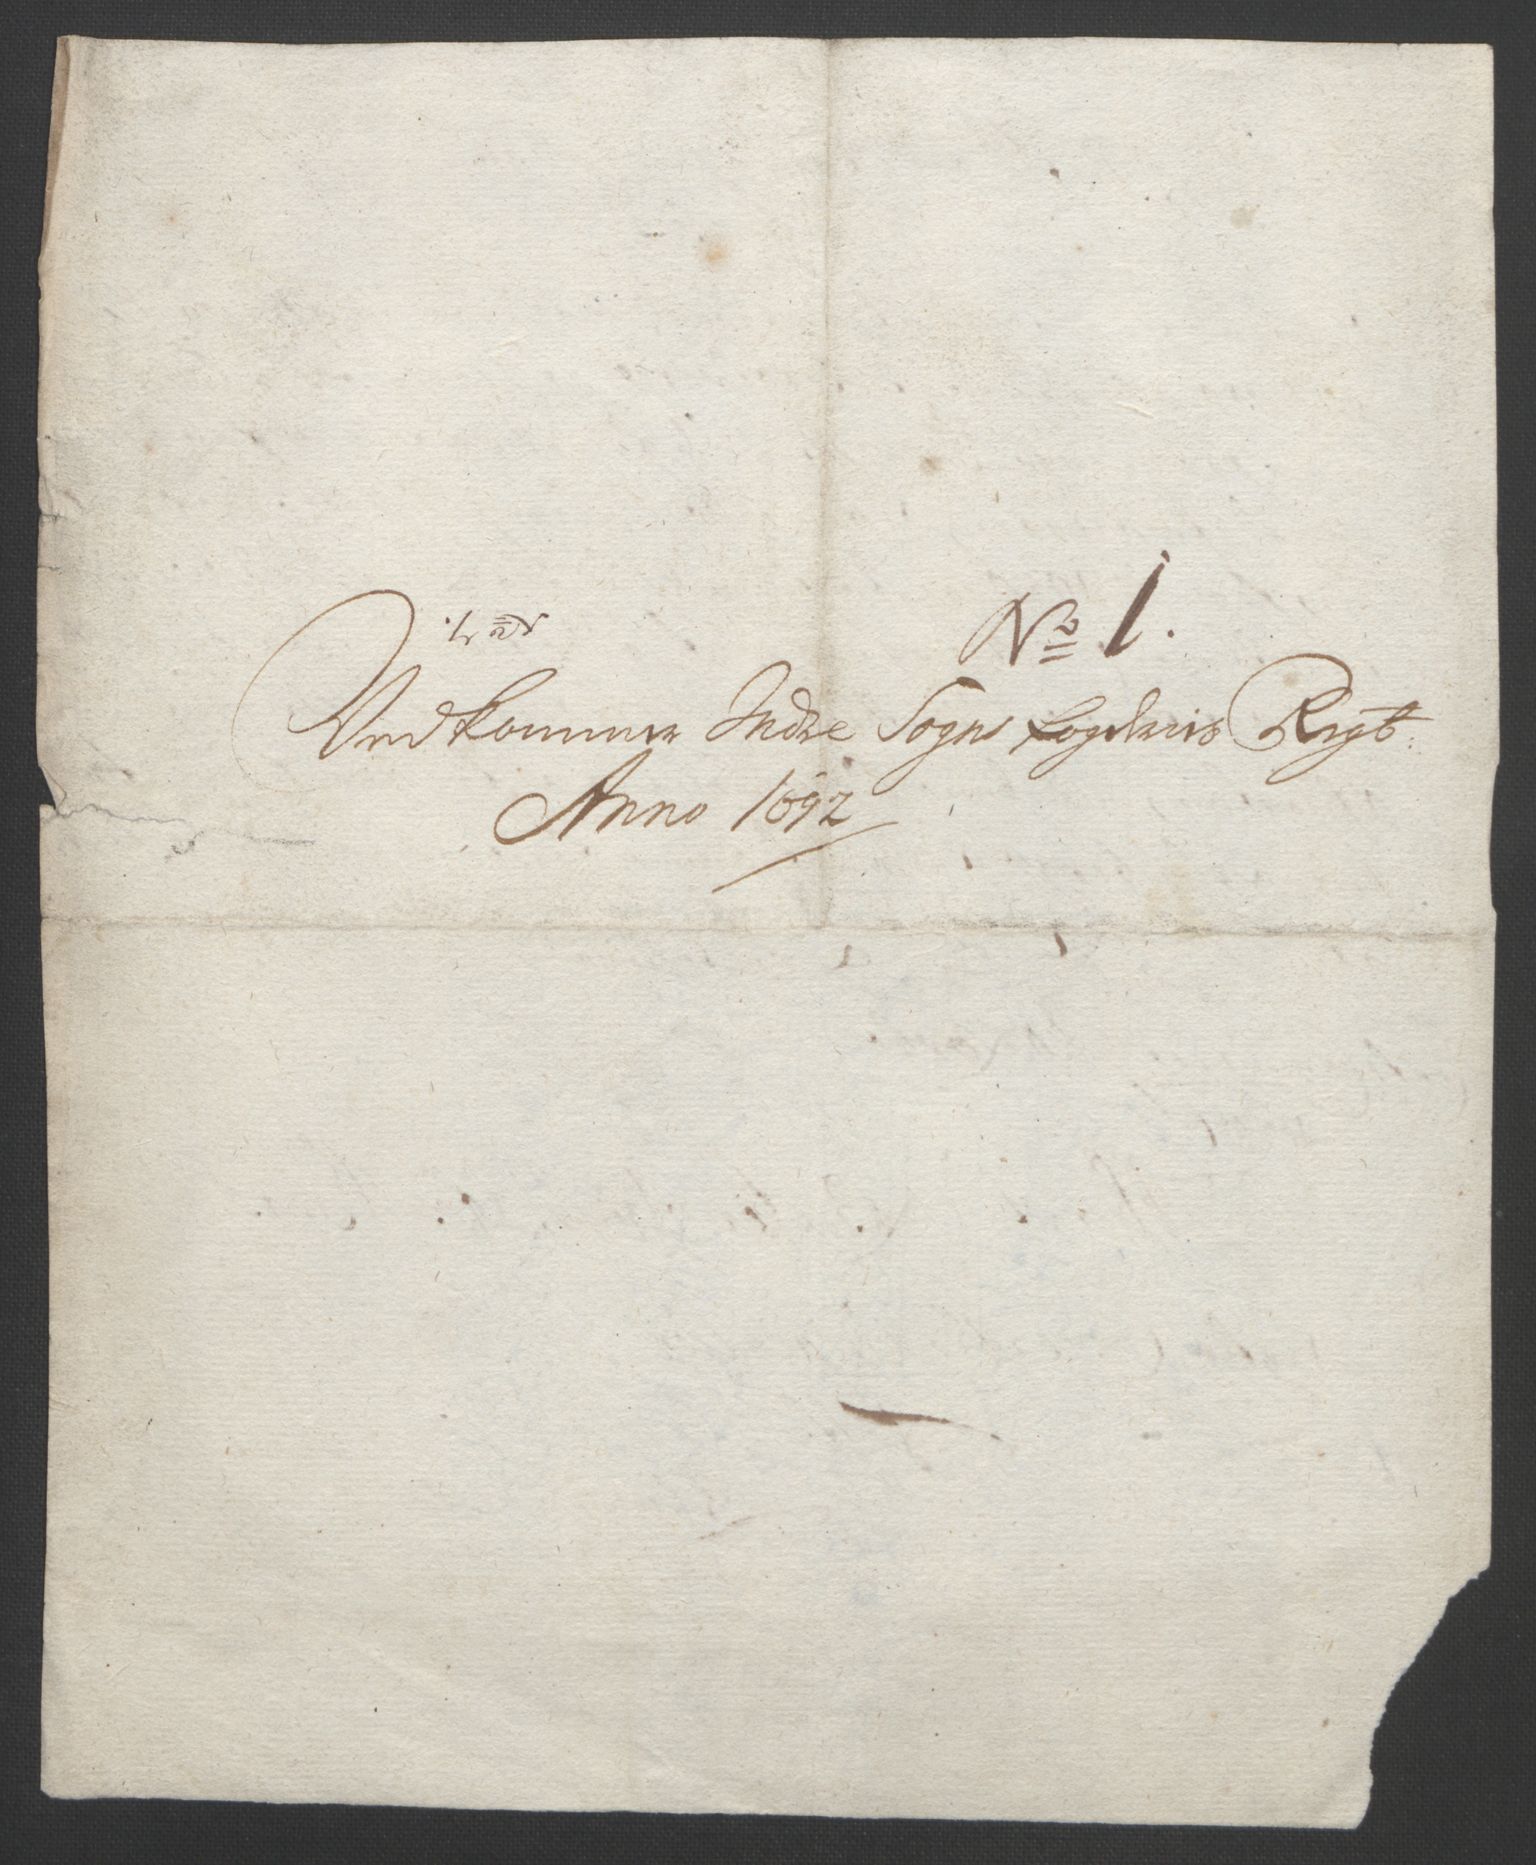 No 1.
Vedkommer Indre Sogns fogderis Regt:
Anno 1692